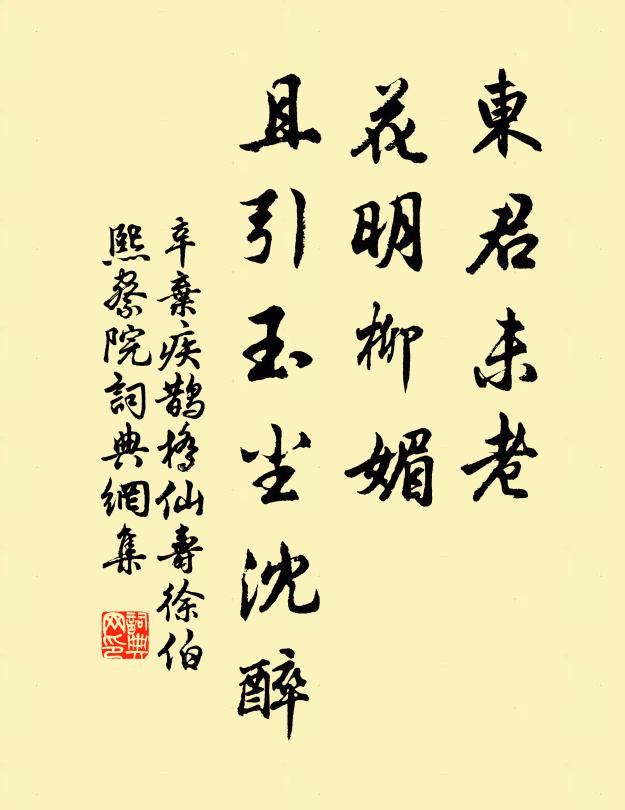 東君未老
花明柳媚
且引玉尘沈醉
辛棄疾鵲橋仙壽徐伯
熙察院詞典網集
詞典网印